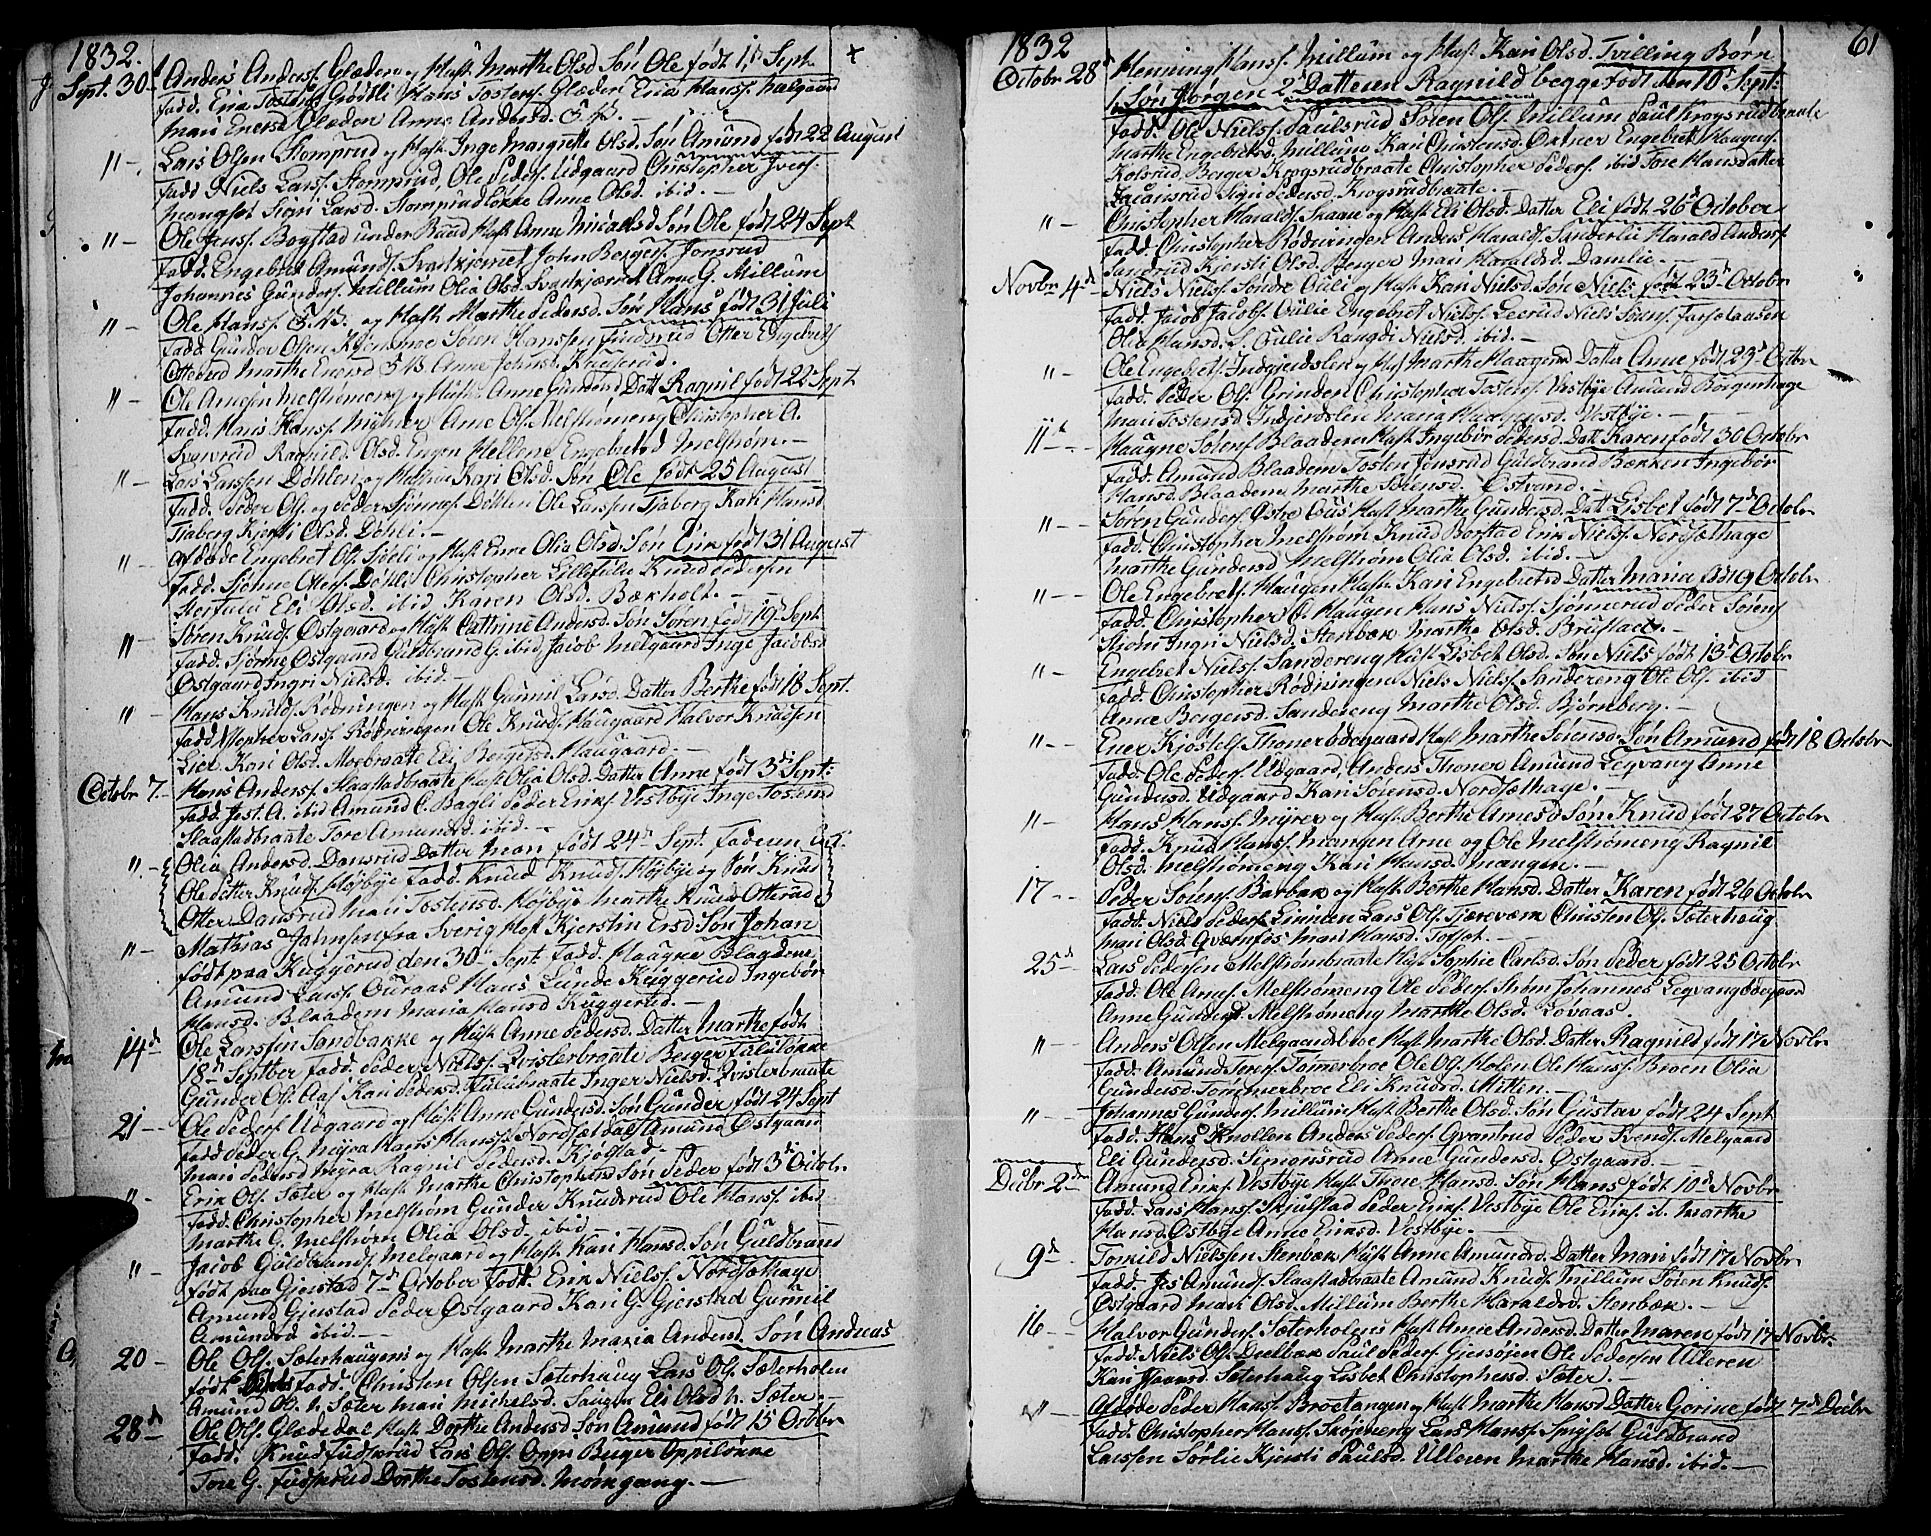 1832.
Sept. 30 Anders Anders. Glæden og Hust. Marthe Olsd Søn Ole født 11 Sept.
fadd. Eric Tostens Grødtli Hans Tostens. Glæden Eric Hans.
Mari Enersd Glæden Anne Andersd.
11 - Lars Olsen Stomprud og Hust Inge Margrethe Olsd. Søn Amund født 22 August
fadd Niels Lars. Stomprud, Ole Peders. Udgaard Christopher Ivers.
Mangset Sigri Larsd. Stomprudløkke Anne Olsd. ibid. —
11 - Ole Jens. Bogstad under Hust Anne Søn Ole født 24 Sept
fadd. Engebret Amunds. Svartkjernet John Bergers. Jonsrud
Johannes Gunders. Millum Olia Olsd. Anne G. Millum
11 - Ole Hans. og Hust. Marthe Pedersd. Søn Hans født 31 Juli
fadd. Gunder Olsen Søren Hanssen Otter Engebrets.
Otterud Marthe Enersd Anne Johns.
11 - Ole Arnesen Melstrømeng og Hust. Anne Gundersd Datt. Ragnil født 22 Sept
fadd. Hans Hans. Myhrer Arne Ols. Melstrømeng Christopher A.
Ragnild. Olsd. Engen Hellene Engebretsd Melstrøm. —
11 - Lars Larssen Døhlen og Hustrue Kari Olsd. Søn Ole født 25 August
fadd. Peder Ols. og Peder Døhlen Ole Larssen Tjaberg Kari Hansd
Tjaberg Kjersti Olsd. Døhli. —
11 - afdøde Engebret Ols. og Hust. Olia Olsd. Søn Eric født 31 August
fadd. Ole Døhli Christopher Knud Pedersen
Eli Olsd. ibid Karen Olsd. Bækholt. —
11 - Søren Knuds. Østgaard og Hust. Cattrine Andersd. Søn Søren født 19 Sept
fadd. Østgaard Guldbrand G. ibid, Jacob Melgaard Inge Jacobsd
Østgaard Ingri Nielsd. ibid. —
11 - Hans Knuds. Rødningen og Hust Gunnil Larsd. Datter Berthe født 18 Sept.
fadd Xtopher Lars. Rødningen Ole Knuds. Haugaard Halvor Knudsen
Lier Kari Olsd. Moebraate Eli Bergersd. Haugaard. —
Octobr 7. Hans Anders. Slaastadbraate Hust Olia Olsd. Datter Anne født 3d Sept:
fadd. Jest. A. ibid Amund C. Bagli Peder Eriks. Vestbye Inge Tostensd
Slaastadbraate Tore Amundsd. ibid. —
11 - Olia Andersd. Dansrud Datter Mari født 24d Sept. faderen
Ole Petter Knuds. Højbye fadd. Knud Knuds. Højbye og Søn Knud
Otter Dansrud Mari Tostensd. Højbye Marthe Knudsd Otterud
11 - Mathias Johnsen fra Sverig Hust Kjerstin Ersd Søn Johan
født paa Kuggerud den 30 Sept. fadd. Haagne Blaadene
Amund Lars. Ouraas Hans Lunde Kuggerud Ingebør
Hansd. Blaadem Maria Hansd Kuggerud. —
14d Ole Larssen Sandbakke og Hust Anne Pedersd. Datter Marthe født
18 Septber fadd. Peder Niels. Qvisterbraate Berger
Gunder Ole Kari Pedersd. Inger Nielsd. Qvisterbraate
21 - Ole Peders. Udgaard og Hust Anne Gundersd. Søn Gunder født 24 Sept
fadd Peder G. Myra Hans Hans. Nordset Amund Østgaard
Mari Pedersd Myra Ragnil Pedersd. Kjøgstad. —
11 - Erik Ols. Sæter og Hust Marthe Christophersd Søn Peder født 3d Octobr.
fadd. Christopher Melstrøm Gunder Knudsrud Ole Hans. ibid
Marthe G. Melstrøm Olia Olsd. ibid —
11 - Jacob Guldbrands. Melgaard og Hust Kari Hansd. Søn Guldbrand
født paa Gjerstad 7d October fadd. Erik Niels. Nordsæthage
Amund Gjerstad Peder Østgaard Kari G. Gjerstad Gunnil
Amundsd ibid. —
20 - Ole Ols. Sæterhaugens og Hust Marthe Maria Andersd. Søn Andreas
født fadd. Christen Olsen Sæterhaug Lars Ols. Sæterholen
Amund Ols. N. Sæter Mari Michelsd. Eli Olsd N. Sæter. —
28d Ole Ols. Glædedal Hust Dorthe Andersd Søn Amund født 15 Octbr
fadd. Knud Lars Ols. Berger
Tore G. Dorthe Tostensd. Momgang. —
1832
61
Octobr 28 Henning Hans. Millum og Hust Kari Olsd. Tvilling Børn
1. Søn Jørgen 2d Datteren Ragnild begge født den 10d Sept:
fadd. Ole Niels. Paulsrud Søren Ols. Millum Paul Krogsrudbraate
Marthe Engebretsd. Millum Kari Christensd. Østner Engebret Haagens.
Kolsrud Berger Krogsrudbraate Christopher Peders. ibid Tore Hansdatter
Sigri Pedersd. Krogsrudbraate. —
11 - Christopher Haralds. Skaare og Hust Eli Olsd. Datter Eli født 26d October
fadd. Christopher Rødningen Anders Haralds. Sanderlie Harald Anders.
Kjersti Olsd. Berger Mari Haraldsd. Damlie. —
Novbr 4d Niels Niels. Søndre Oulie og Hust Kari Nielsd. Søn Niels født 23d Octobr
fadd. Jacob Jacobs. Oulie Engebret Niels. Leerud Niels
Olia Hansd. S. Oulie Rangdi Nielsd. ibid. —
11 - Ole Engebrets. Indgjerdslen og Hust Marthe Datter Anne født 23d Octbr
fadd. Peder Ols. Grinder Christopher Tostens. Vestbye Amund Borgenhage
Mari Tostensd Indjerdslen Maria Vestbye. —
11d - Haagne Sørens. Blaadem Hust Ingebør Pedersd Datt Karen født 30 Octobr
fadd. Amund Blaadem Tosten Jensrud Guldbrand Bækken Ingebør
Hansd. Blaadem Marthe Sørensd. Østvand. —
11 - Søren Gunders. Østre Buas Hust Marthe Gundersd. Datt Lisbet født 7d Octobr
fadd. Christopher Melstrøm Knud Borstad Erik Niels. Nordsæthage
Marthe Gundersd Melstrøm Olia Olsd. ibid. —
11 - Ole Engebrets. Haugen Hust Kari Engebretsd Datter Maria født 9 Octobr
fadd. Christopher O. Haugen Hans Niels. Sjønnerud Peder Sørens.
Strøm Ingri Nielsd. Stenbæk Marthe Olsd. Brustad. —
11 - Engebret Niels. Sandereng Hust Lisbet Olsd. Søn Niels født 13d Octobr
fadd. Christopher Rødningen Niels Niels. Sandereng Ole Ols. ibid
Anne Bergersd. Sandereng Marthe Olsd. Bjørnberg. —
11 - Ener Kjøstels. Thonerbødegaard Hust Marthe Sørensd. Søn Amund født 18 Octobr
fadd. Ole Peders. Udgaard, Anders Thoner Amund Legvang Anne
Gundersd. Udgaard Kari Sørensd. Nordsæthage. —
11 - Hans Hans. Myrer og Hust. Berthe Arnesd Søn Knud født 27 Octobr
fadd. Knud Hans. Mangen Arne og Ole Melstrømeng Ragnil
Olsd. Melstrømeng Kari Hansd. Mangen. —
17 - Peder Sørens. Barbak og Hust Berthe Hansd. Datter Karen født 26 Octobr
fadd. Niels Peders. Linnen Lars Ols. Christen Ols. Sæterhaug
Mari Olsd. Qværnfos Mari Hansd. Tofset. —
25d Lars Pedersen Melstrømbraate Hust Sophie Carlsd. Søn Peder født 25 Octobr
fadd. Ole Arnes. Melstrømeng Ole Peders. Strøm Johannes Legvangbøegaar
Anne Gundersd Melstrømeng Marthe Olsd. Løvaas. —
11 - Anders Olsen Melgaardsboe Hust Marthe Olsd. Datter Ragnild født 17 Novbr
fadd. Amund Jens. Tømmerbroe Ole Ols. Holen Ole Hans. Broen Olia
Gundersd. Tømmerbroe Eli Knudsd. Mitten. —
11 - Johannes Gunders. Millum Hust Berthe Olsd. Søn Gustav født 24 Sept
fadd. Hans Knollen Anders Peders. Qvantrud Peder Svends. Melgaard
Eli Gundersd. Simonsrud Anne Gundersd. Østgaard. —
Decbr 2d Amund Eriks. Vestbye Hust Thore Hansd. Søn Hans født 10d Novbr
fadd. Lars Hans. Skjulstad Peder Eriks. Vestbye Ole Eriks. ib. Marthe
Hansd. Østbye Anne Eriksd. Vestbye. —
9d Tomild Nielssen Stenbæk Hust Anne Amundsd. Datter Mari født 17 Novbr
fadd. Jes Amunds. Slaastadbraate Amund Knuds. Millum Søren Knuds.
Østgaard Mari Olsd. Millum Berthe Haraldsd. Stenbæk. —
16 - Halvor Gunders. Sæterholens Hust Anne Andersd. Datter Maren født 17 Novbr
fadd. Niels Ols. Deelbæk Paul Peders. Gjersøjen Ole Pedersen Ulleren
Kari Sæterhaug Lisbet Christophersd. Sæter. —
11 - Afdøde Peder Hans. Broetangen og Hust Marthe Hansd Datter Gorine født 7d Decbr
fadd. Christopher Hans. Skøjeneng Lars Hans. Spigset Guldbrand
Larssen Sørlie Kjersti Paulsd. Ulleren Marthe Hansd. ibid. —